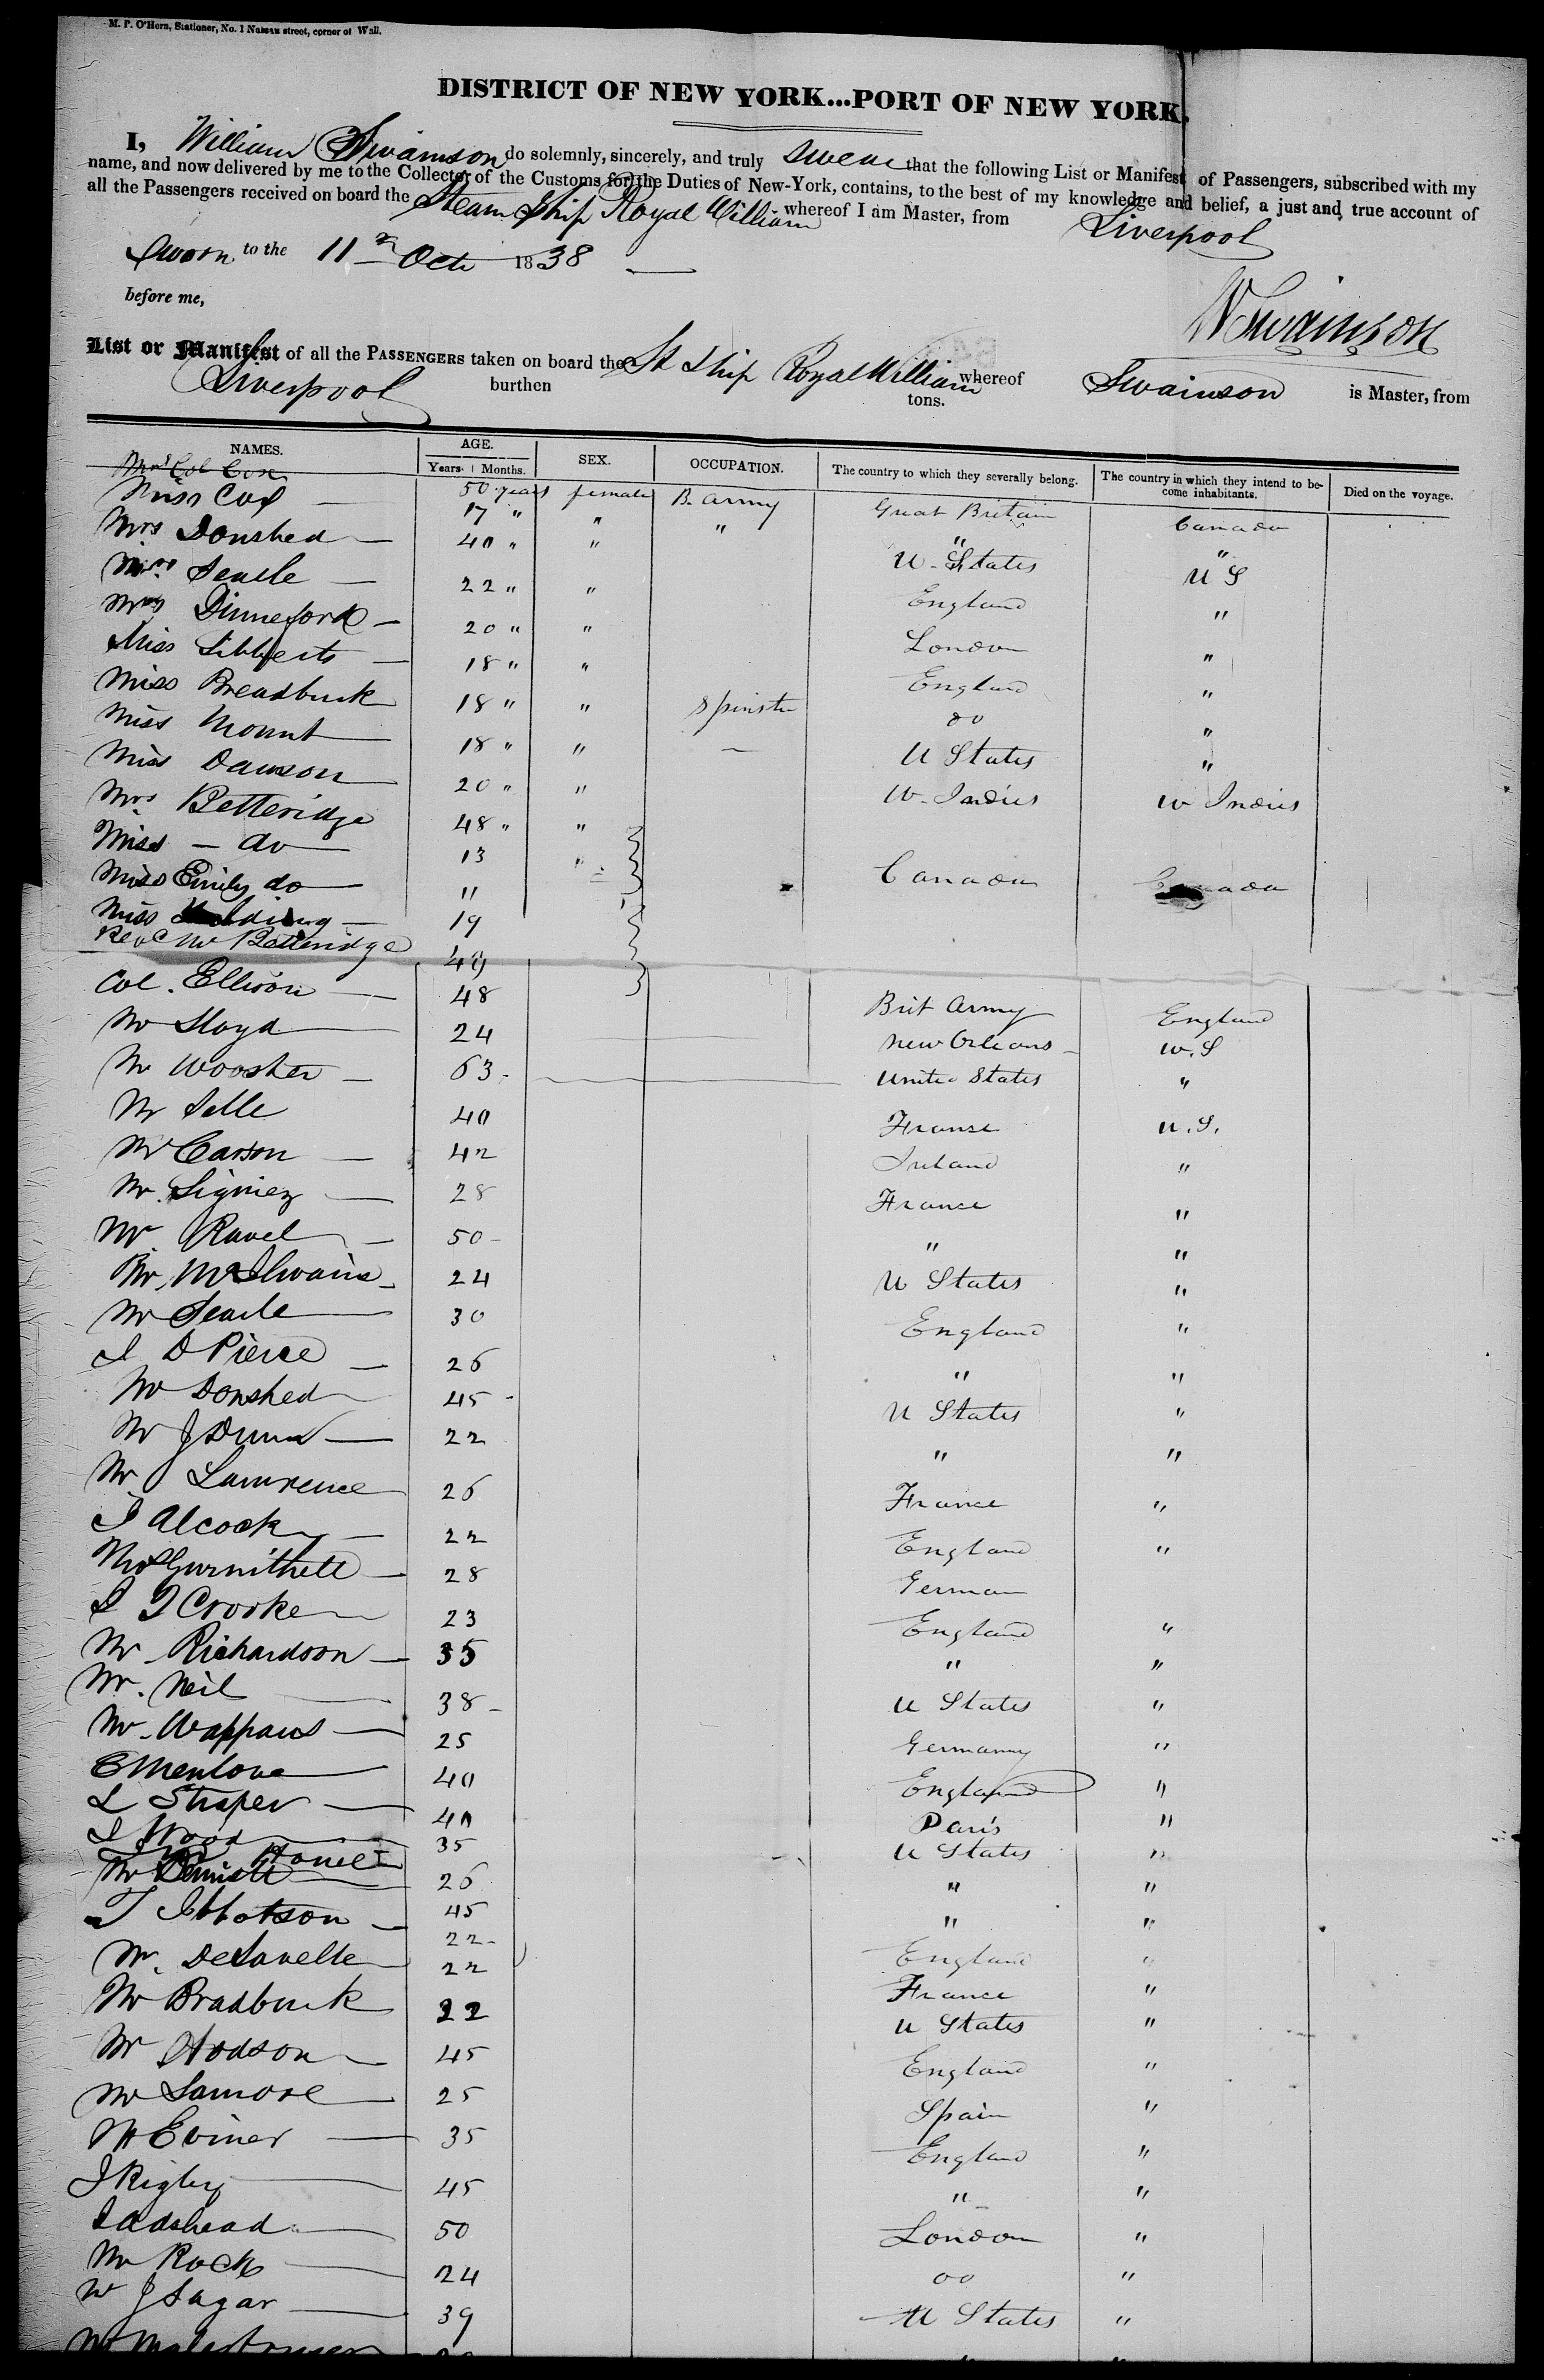 M. P. O'Horn, Stationer, No. 1 Nassau street, corner of Wall.
DISTRICT OF NEW YORK...PORT OF NEW YORK.
I, William Swainson do solemnly, sincerely, and truly swear that the following List or Manifest of Passengers, subscribed with my
name, and now delivered by me to the Collector of the Customs for the Duties of New-York, contains, to the best of my knowledge and belief, a just and true account of
all the Passengers received on board the Steam Ship Royal William whereof I am Master, from Liverpool
Sworn to the 11th Octr 1838
before me,
W Swainson
List or Manifest of all the PASSENGERS taken on board the St Ship Royal William whereof Swainson is Master, from
Liverpool burthen tons.
NAMES. AGE. SEX. OCCUPATION. The country to which they severally belong. The country in which they intend to become inhabitants. Died on the voyage.
Years. Months.
Mrs Col Cox 50 years female B. Army Great Britain Canada
Miss Cox 17 " " " " "
Mrs Donshed 40 " " U. States U S
Mrs Searle 22 " " England "
Mrs Dinneford 20 " " London "
Miss 18 " " England "
Miss Breadbuck 18 " " Spinster do "
Miss Mount 18 " " U States "
Miss Dawson 20 " " W. Indies W Indies
Mrs Betteridge 48 " "
Miss - do 13 " Canada Canada
Miss Emily do 11
Miss 19
Revd Mr Betteridge 49
Col. Ellison 48 Brit Army England
Mr Lloyd 24 New Orleans W. S
Mr Wooster 63 United States "
Mr Selle 40 France U. S.
Mr Carson 42 Ireland "
Mr. Signiez 28 France "
Mr Ravel 50 " "
Mr. McIlwaine 24 U States "
Mr Searle 30 England "
J D Pierce 26 " "
Mr Donshed 45 U States "
Mr J Dunn 22 " "
Mr Lawrence 26 France "
J Alcock 22 England "
28 German
J J Crooke 23 England "
Mr Richardson 35 " "
Mr. Neil 38 U States "
Mr. Wappaus 25 Germany "
E Menlove 40 England "
L Straper 40 Paris "
J Wood 35 U States "
26 " "
Mr Bennett 45 " "
T Ibbotson 22 England "
Mr. DeLavelle 22 France "
Mr Bradbuck 22 U States "
Mr Hodson 45 England "
Mr Samore 25 Spain "
Mr Eviner 35 England "
J Rigby 45 " "
J Adshead 50 London "
Mr Rock 24 do "
Mr J Sagar 39 U States "